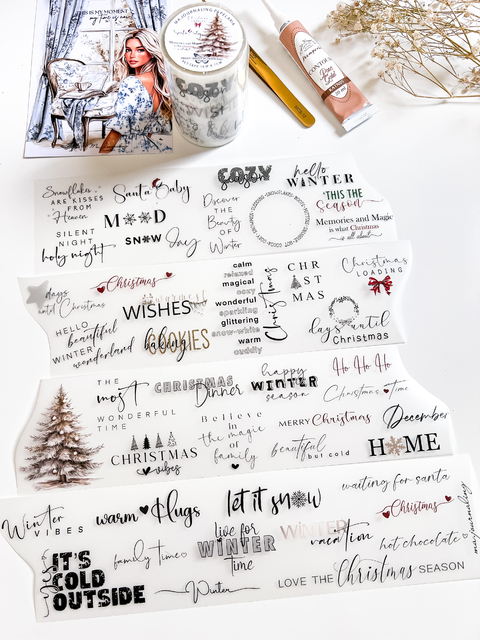 THIS IS MY MOMENT
COZY
Snowflakes
ARE KISSES
FROM
Heaven
SILENT
NIGHT
holy night
Santa Baby
SNOW Day
Discover
THE
Beauty
OF
Winter
COZY
Season
hello
WINTER
'THIS THE
Season
Memories and Magic
is what Christmas
is all about
days
until Christmas
HELLO
beautiful
WINTER
wonderland
Christmas
WISHES
baking
COOKIES
calm
relaxed
magical
cozy
wonderful
sparkling
glittering
snow-white
warm
cuddly
Christmas
CHR
IST
MAS
days until
Christmas
Christmas
LOADING
THE
most
WONDERFUL
TIME
CHRISTMAS
vibes
CHRISTMAS
Dinner
Believe
in
the magic
of
family
happy
WINTER
season
MERRY Christmas
beautiful
but cold
Ho Ho Ho
Christmas Time
December
HOME
Winter
VIBES
yes
IT'S
COLD
OUTSIDE
warm Hugs
family time
let it snow
live for
WINTER
time
Winter
WINTER
vacation
waiting for santa
Christmas
hot chocolate
LOVE THE Christmas SEASON